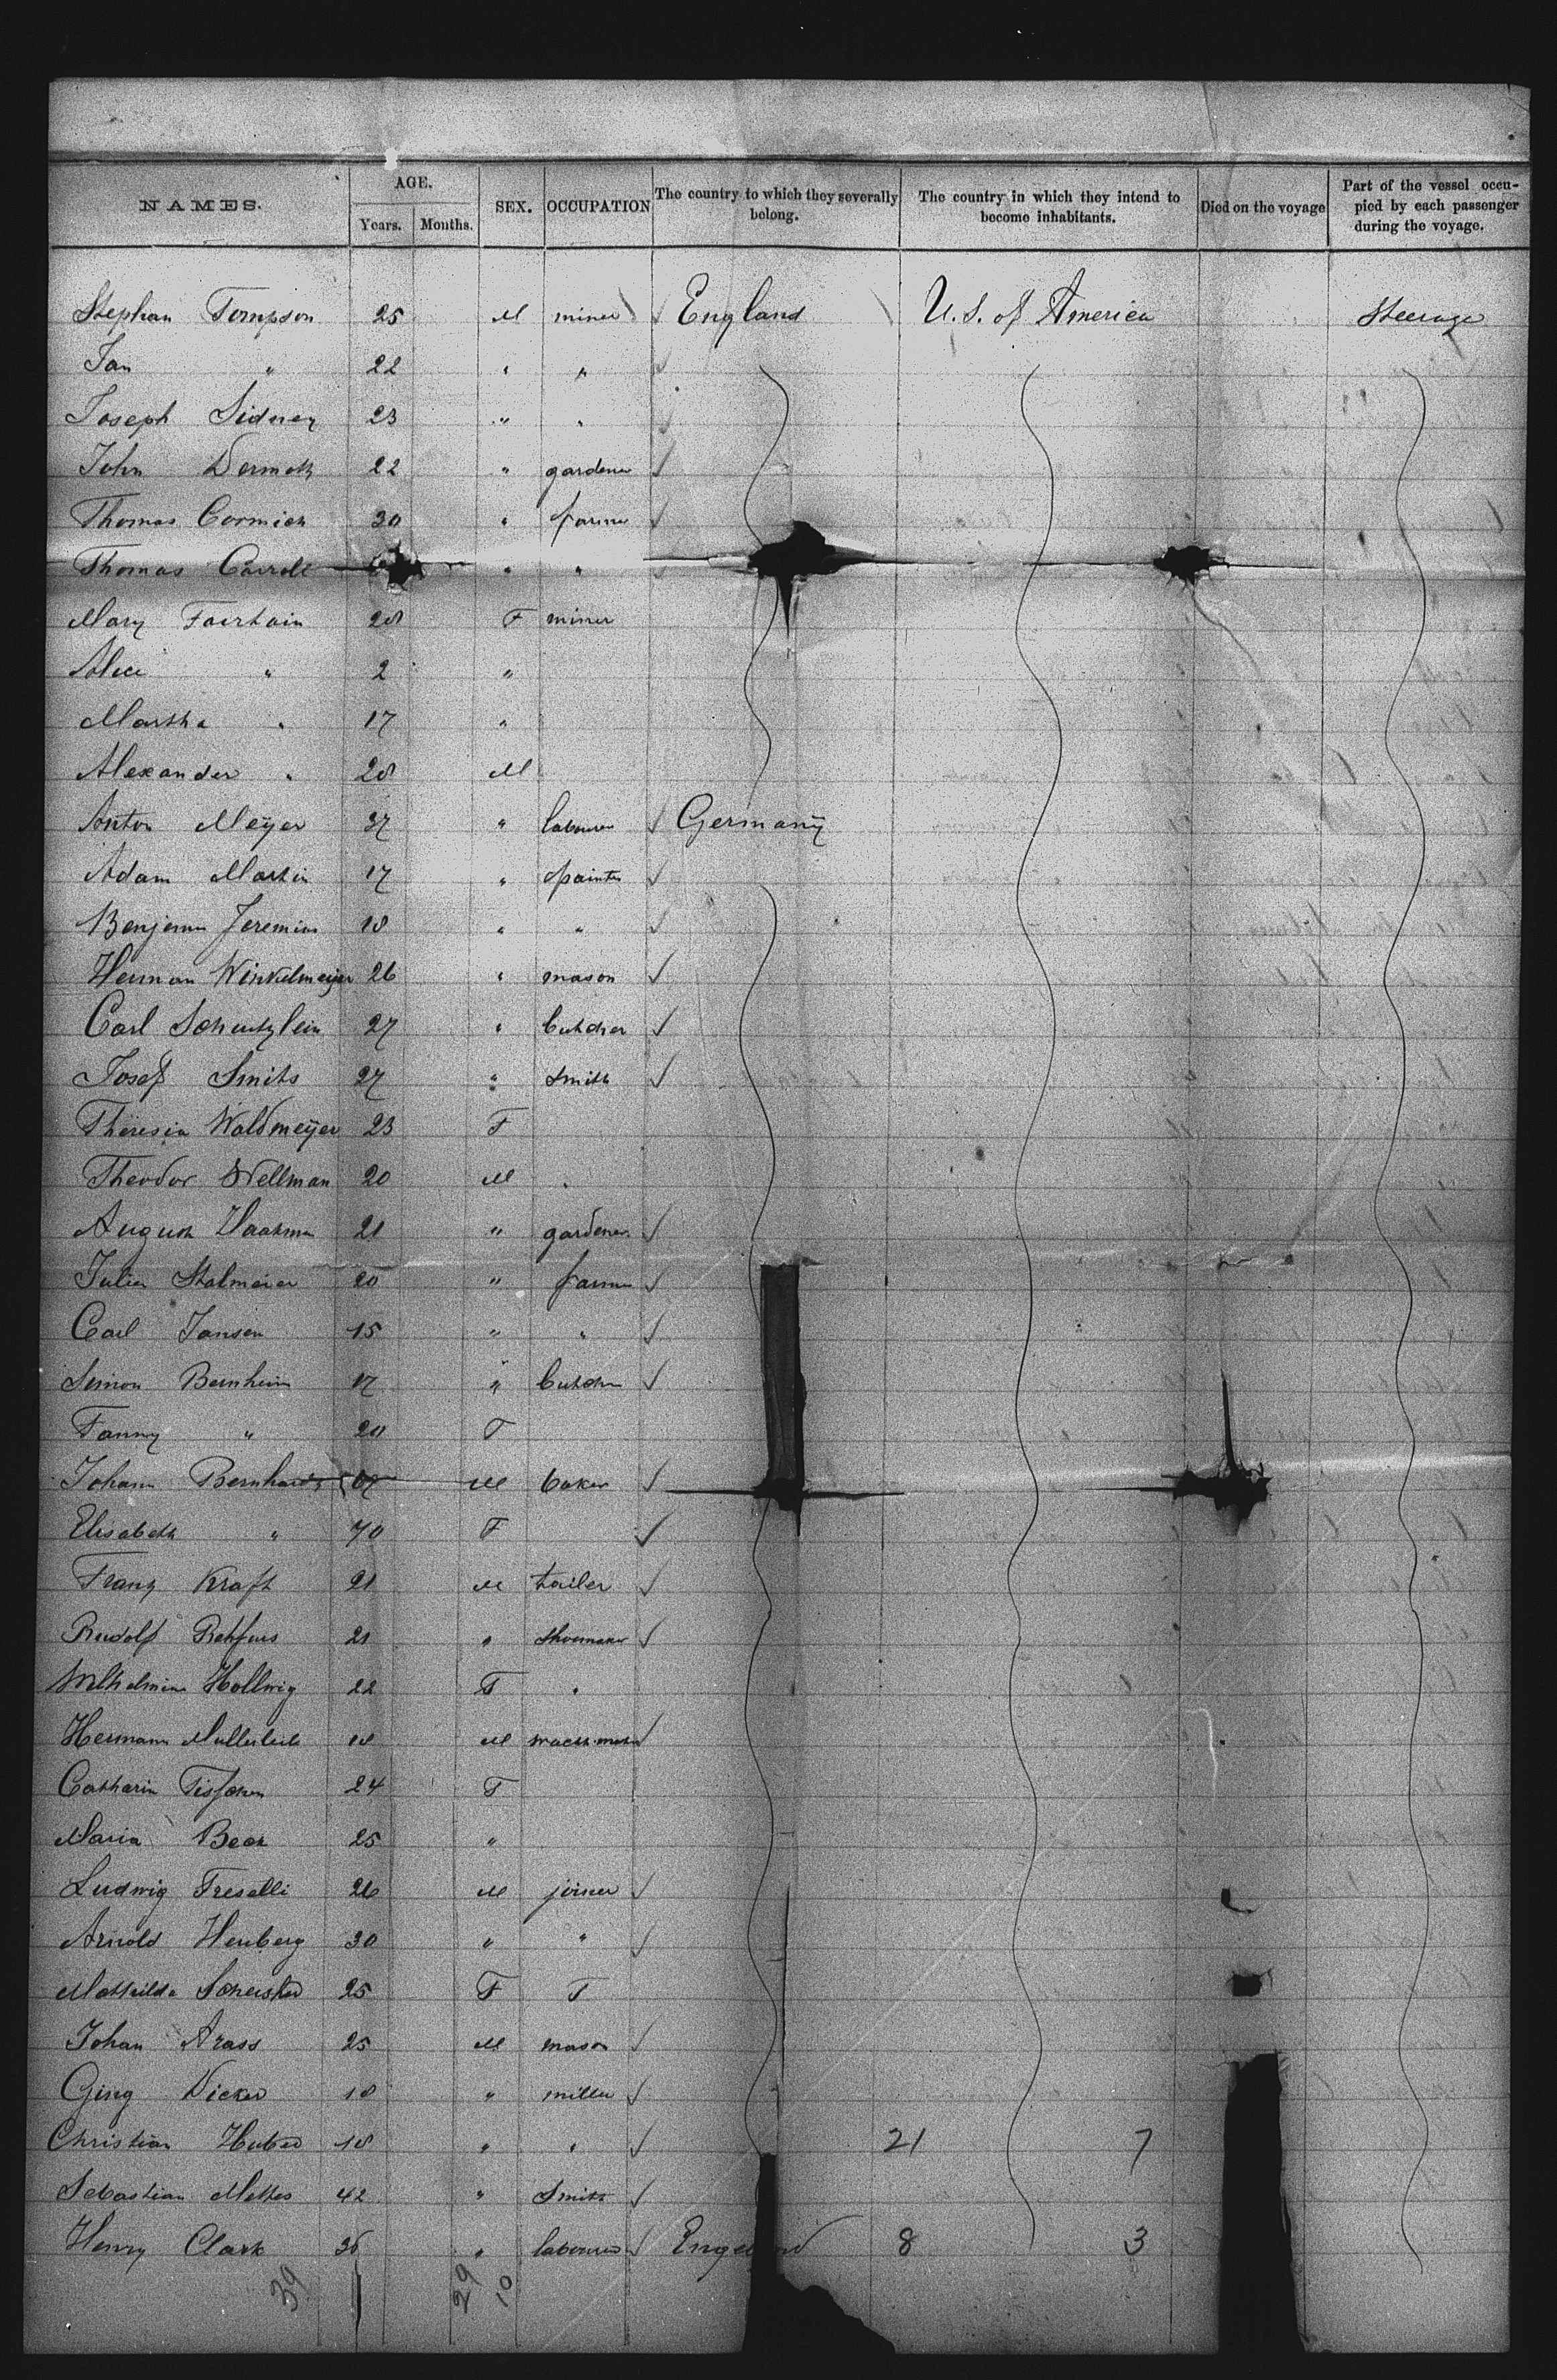 NAMES. AGE. Years. Months. SEX. OCCUPATION The country to which they severally belong. The country in which they intend to become inhabitants. Died on the voyage Part of the vessel occupied by each passenger during the voyage.
Stephan Tompson 25 M miner England U.S. of America Steerage
Jan " 22 " "
Joseph Sidney 23 " "
John Dermott 22 " gardener
Thomas Cormick 30 " farmer
Thomas Carroll " "
Mary Fairhain 28 F miner
Alice " 2 "
Martha " 17 "
Alexander " 28 M
Anton Meÿer 37 " labourer Germanÿ
Adam Martin 17 " painter
Benjamin Jeremias 18 " "
Herman Winkelmeijer 26 " mason
Carl Schutzlein 27 " butcher
Josef Smits 27 " Smith
Theresia Waldmeÿer 23 F
Theodor Wellman 20 M "
August Haakman 21 " gardener
Julier Stalmeier 20 " farmer
Carl Jansen 15 " "
Simon Bernheim 17 " butcher
Fanny " 20 F
Johann Bernhards 67 M baker
Elisabeth " 70 F
Franz Kraft 21 M tailer
Rudolf Rehfues 21 " Shoemaker
Wilhelmine Hollwig 22 F "
Hermann 18 M
Catharin 24 F
Maria Beck 25 "
Ludwig Treselli 26 M joiner
Arnold Henberg 30 " "
Mathilda 25 F
Johan Arass 25 M mason
Ging Dicker 18 " miller
Christian Huber 18 " " 21 7
Sebastian Mettes 42 " Smith
Henry Clark 36 " labourer 8 3
39 29 10